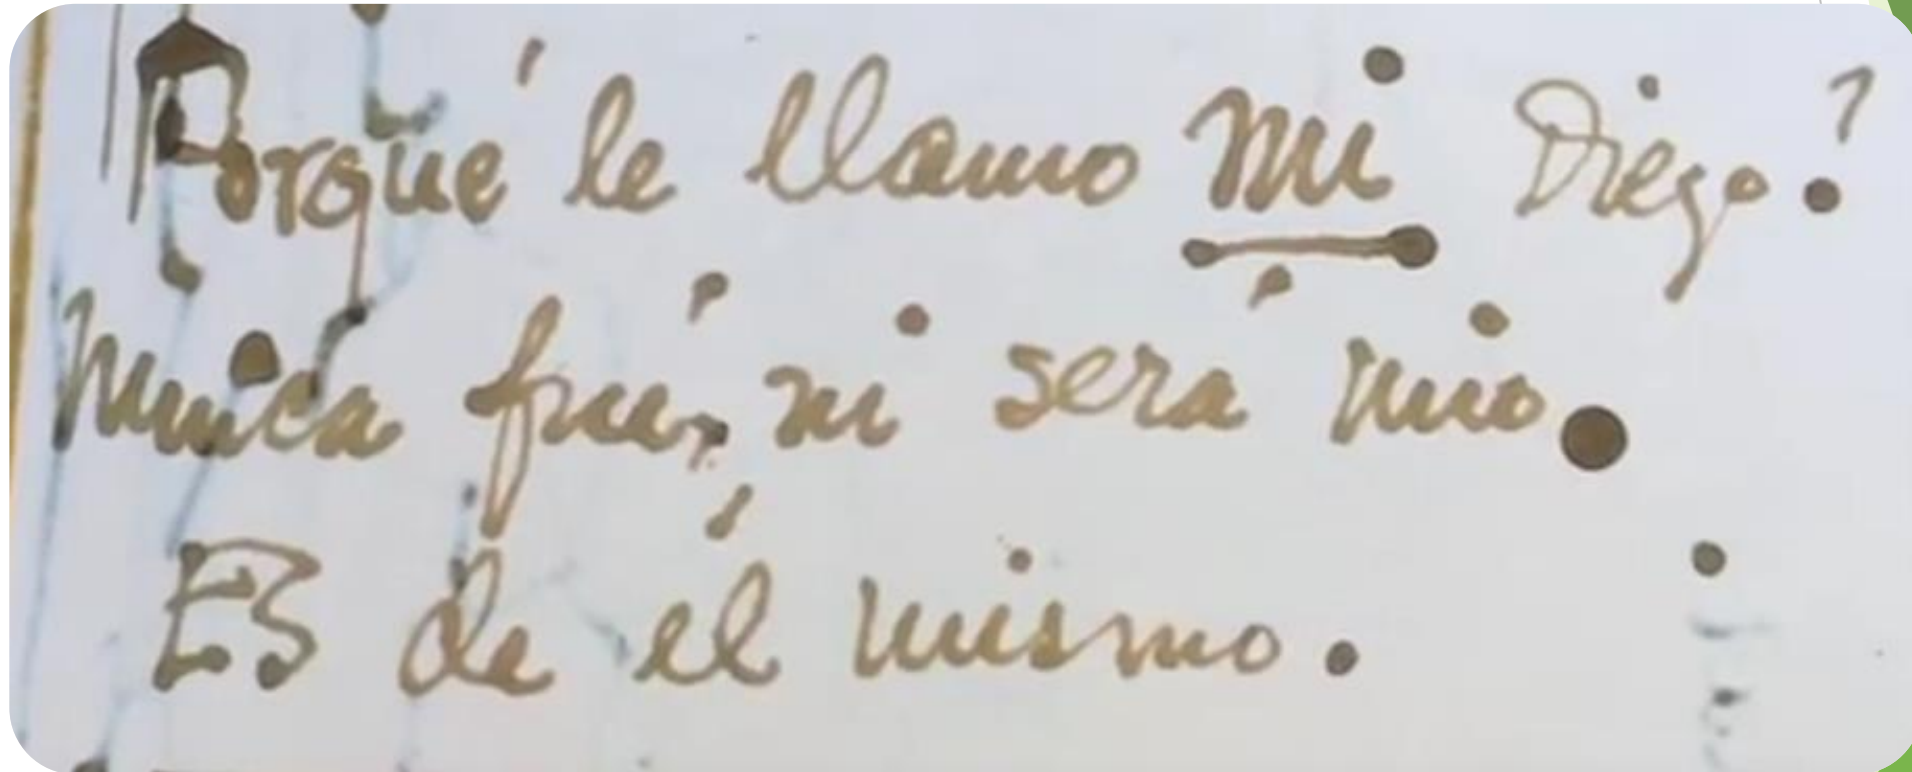 Porqué le llamo mi Diego?
Nunca fué, ni será mio.
ES de él mismo.